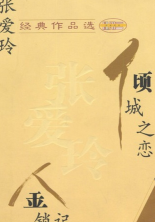 张爱玲
经典作品选
张爱玲
倾城之恋
金锁记